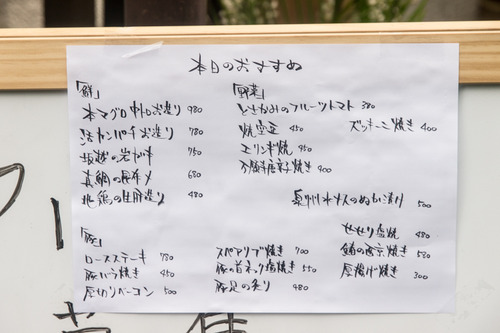 本日のおすすめ
「鮮」
本マグロ中トロお造り 980
活カンパチお造り 780
岩ガキ 750
真鯛の昆布〆 680
地鶏の お造り 480
「野菜」
フルーツトマト 380
焼空豆 450
ズッキーニ焼き 400
エリンギ焼 450
万願寺唐辛子焼き 400
泉州水ナスのぬか漬け 500
「豚」
ロースステーキ 780
豚バラ焼き 450
厚切りベーコン 500
スペアリブ焼き 700
豚の首ネック塩焼き 550
豚足の炙り 480
せせり塩焼 480
鯖の西京焼き 580
厚揚げ焼き 300